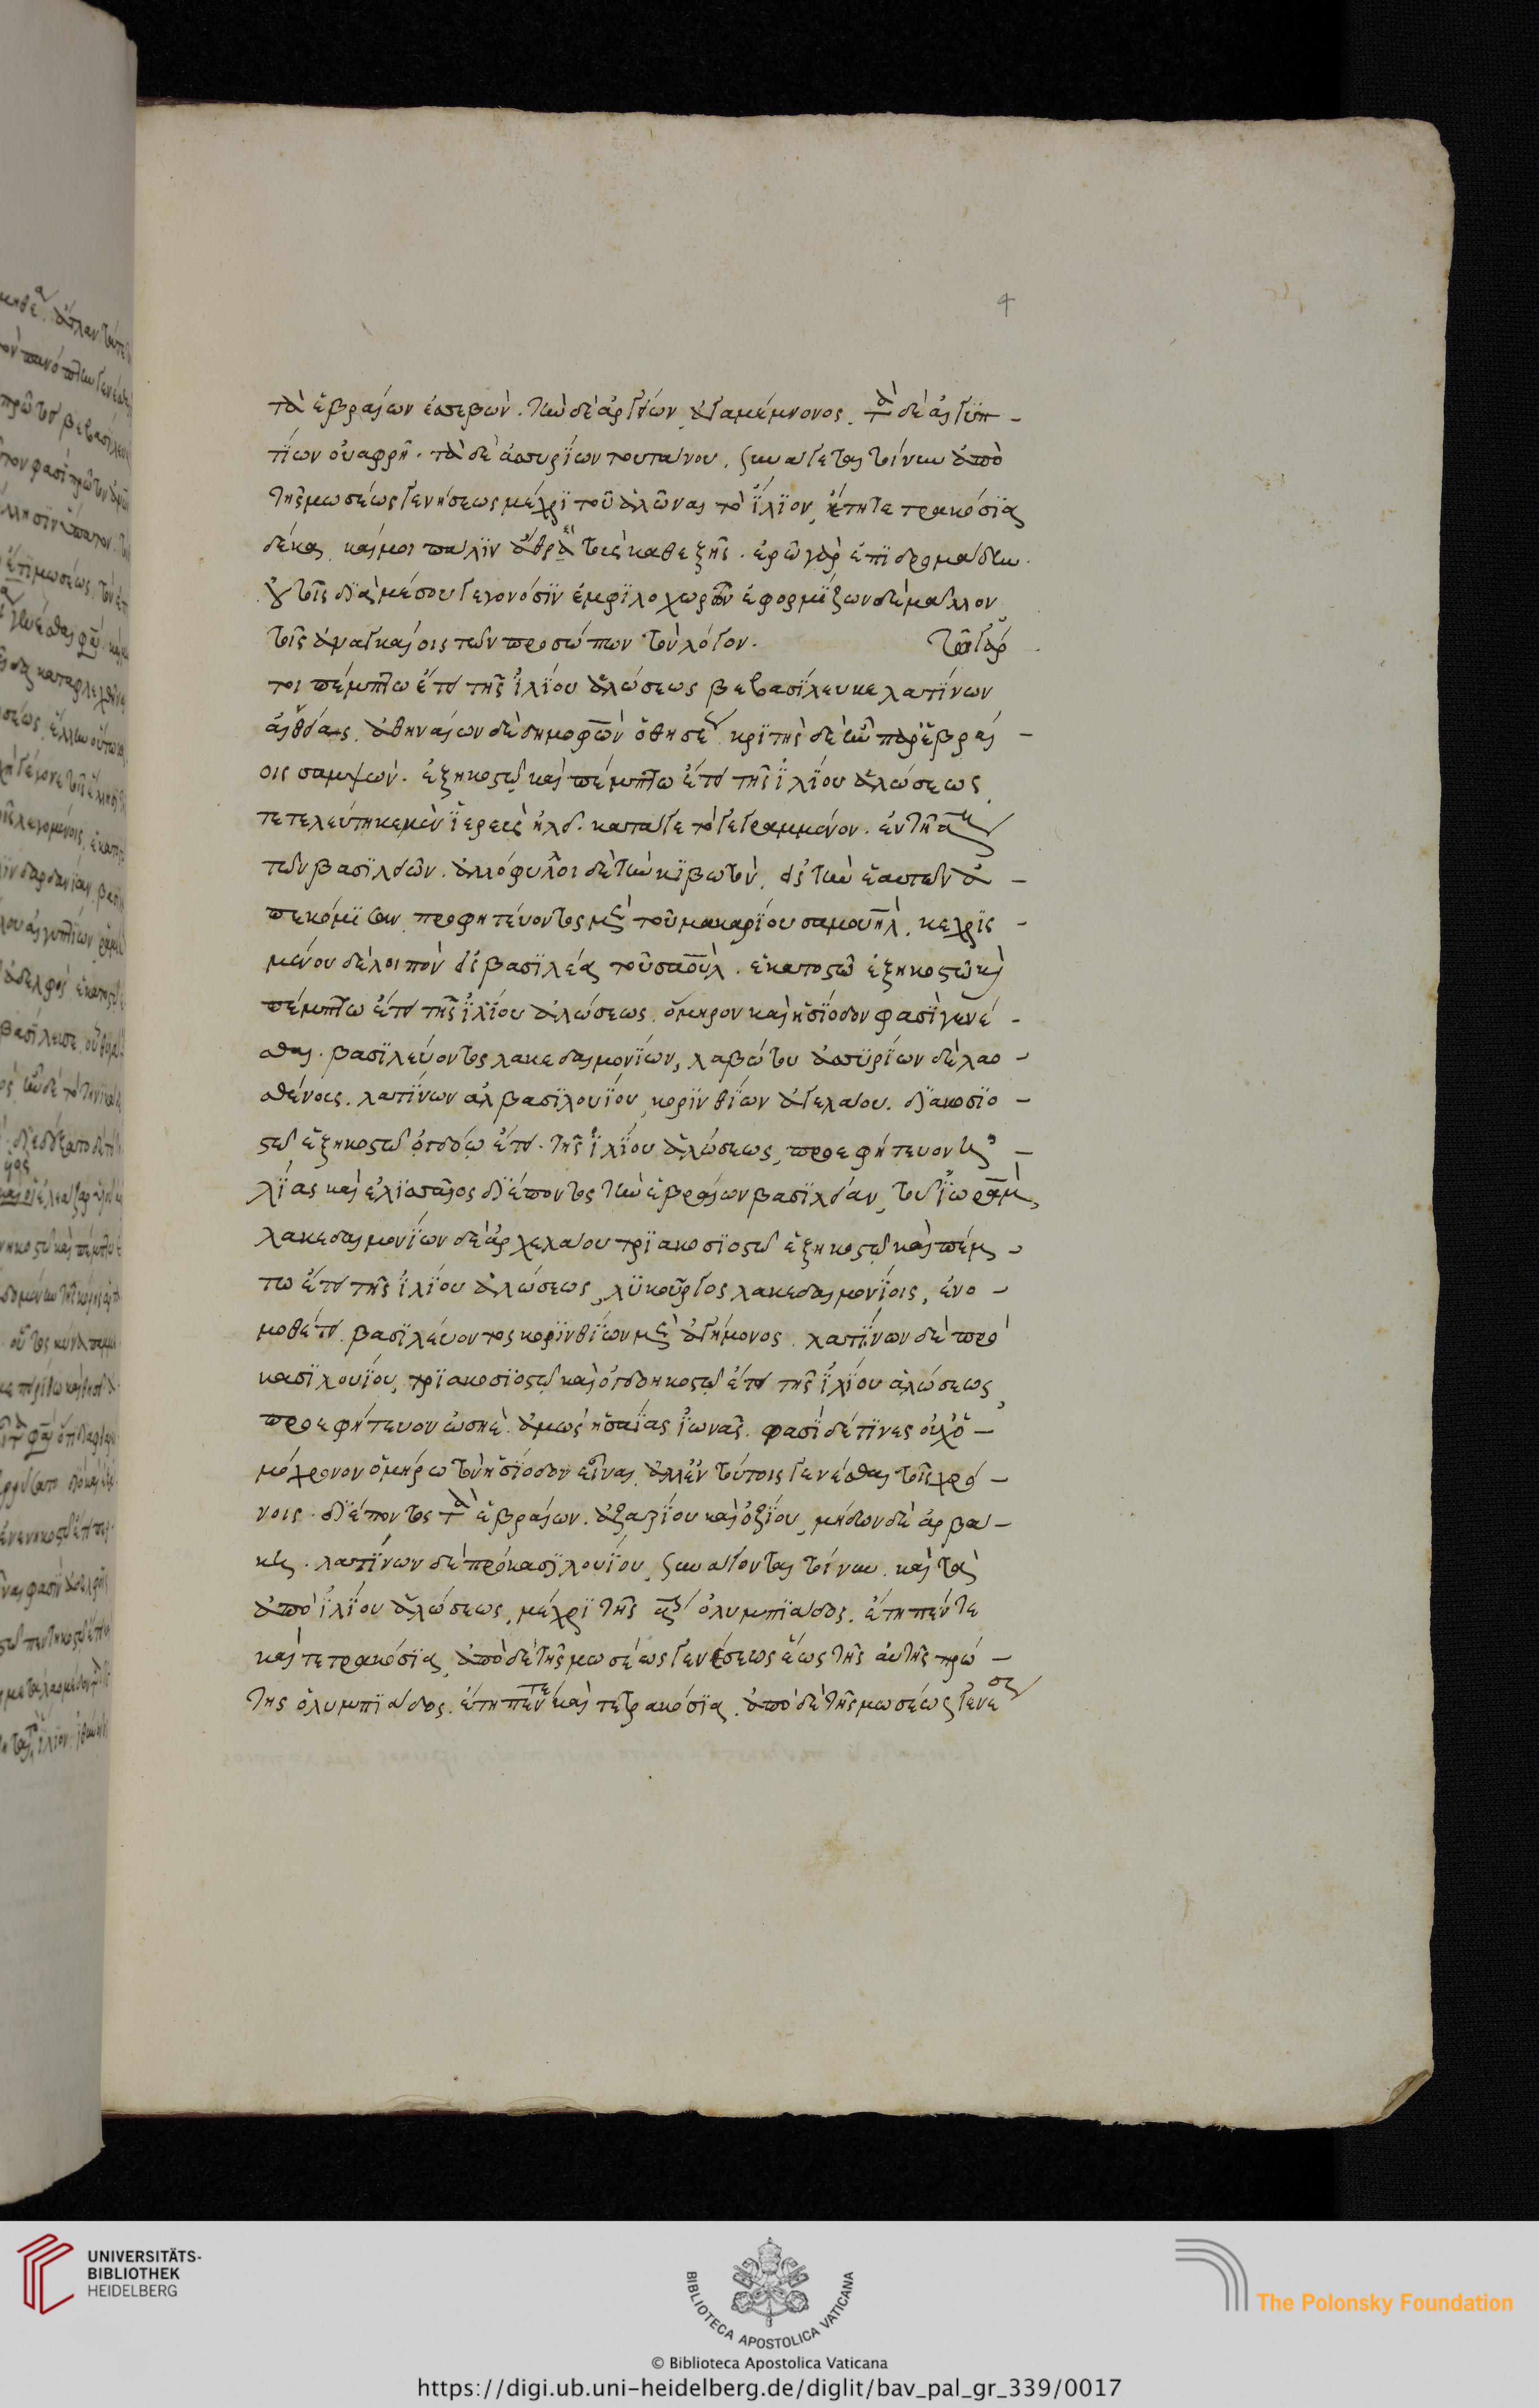 4
τὰ ἑβραίων ἐσεβών. τῶν δὲ ἀργείων, ἀγαμέμνονος. τὰ δὲ αἰγυπ-
τίων οὐαφρῆ. τὰ δὲ ἀσσυρίων τουτάνου. συνάγεται τοίνυν ἀπὸ
τῆς μωσέως γενήσεως μέχρι τοῦ ἁλῶναι τὸ ἴλιον, ἔτη τετρακόσια
δέκα. καί μοι πάλιν ἄθρει τοὺς καθεξῆς. ἐρῶ γὰρ ἐπιδρομάδην.
οὐ τοῖς διὰ μέσου γεγονόσιν ἐμφιλοχωρῶν ἐφορμίζων δὲ μᾶλλον
τοῖς ἀναγκαίοις τῶν προσώπων τὸν λόγον. τῷ γάρ
τοι πέμπτῳ ἔτει τῆς ἰλίου ἁλώσεως βεβασίλευκε λατίνων
αἰνείας, ἀθηναίων δὲ δημοφῶν ὁ θησέως. κριτὴς δὲ ἦν παρ' ἑβραί-
οις σαμψών. ἑξηκοστῷ καὶ πέμπτῳ ἔτει τῆς ἰλίου ἁλώσεως,
τετελεύτηκε μὲν ἱερεὺς ἠλεί. κατά γε τὸ γεγραμμένον. ἐν τῇ α΄
τῶν βασιλειῶν. ἀλλόφυλοι δὲ τὴν κιβωτόν, εἰς τὴν ἑαυτῶν ἀ-
πεκόμισαν. προφητεύοντος μὲν τοῦ μακαρίου σαμουήλ, κεχρισ-
μένου δὲ λοιπὸν εἰς βασιλέα τοῦ σαούλ. ἑκατοστῷ ἑξηκοστῷ καὶ
πέμπτῳ ἔτει τῆς ἰλίου ἁλώσεως. ὅμηρον καὶ ἡσίοδον φασὶ γενέ-
σθαι. βασιλεύοντος λακεδαιμονίων, λαβώτου ἀσσυρίων δὲ λαο-
σθένους. λατίνων ἀλβασιλουίου, κορινθίων ἀγελάου. διακοσιο-
στῷ ἑξηκοστῷ ὀγδόῳ ἔτει. τῆς ἰλίου ἁλώσεως, προεφήτευον ἠ-
λίας καὶ ἐλισσαῖος διέποντος τὴν ἑβραίων βασιλείαν, τοῦ ἰωράμ,
λακεδαιμονίων δὲ ἀρχελάου τριακοσιοστῷ ἑξηκοστῷ καὶ πέμπ-
τῳ ἔτει τῆς ἰλίου ἁλώσεως, λυκοῦργος λακεδαιμονίοις, ἐνο-
μοθέτει. βασιλεύοντος κορινθίων μὲν ἀγήμονος. λατίνων δὲ προ
κασιλουίου, τριακοσιοστῷ καὶ ὀγδοηκοστῷ ἔτει τῆς ἰλίου ἁλώσεως,
προεφήτευον ὠσηέ. ἀμώς ἡσαΐας ἰωνᾶς. φασὶ δέ τινες οὐχ ὁ-
μόχρονον ὁμήρῳ τὸν ἡσίοδον εἶναι, ἀλλ' ἐν τούτοις γενέσθαι τοῖς χρό-
νοις. διέποντος τὰ ἑβραίων. ἀζαρίου καὶ ὀζίου, μήδων δὲ ἀρβά-
κους. λατίνων δὲ πρόκασιλουίου, συνάγονται τοίνυν. καὶ τὰ
ἀπὸ ἰλίου ἁλώσεως, μέχρι τῆς α΄ ὀλυμπιάδος. ἔτη πέντε
καὶ τετρακόσια, ἀπὸ δὲ τῆς μωσέως γενέσεως ἕως τῆς αὐτῆς πρώ-
της ὀλυμπιάδος. ἔτη πέντε καὶ τετρακόσια. ἀπὸ δὲ τῆς μωσέως γενέσε
UNIVERSITÄTS-
BIBLIOTHEK
HEIDELBERG
BIBLIOTECA APOSTOLICA VATICANA
The Polonsky Foundation
© Biblioteca Apostolica Vaticana
https://digi.ub.uni-heidelberg.de/diglit/bav_pal_gr_339/0017